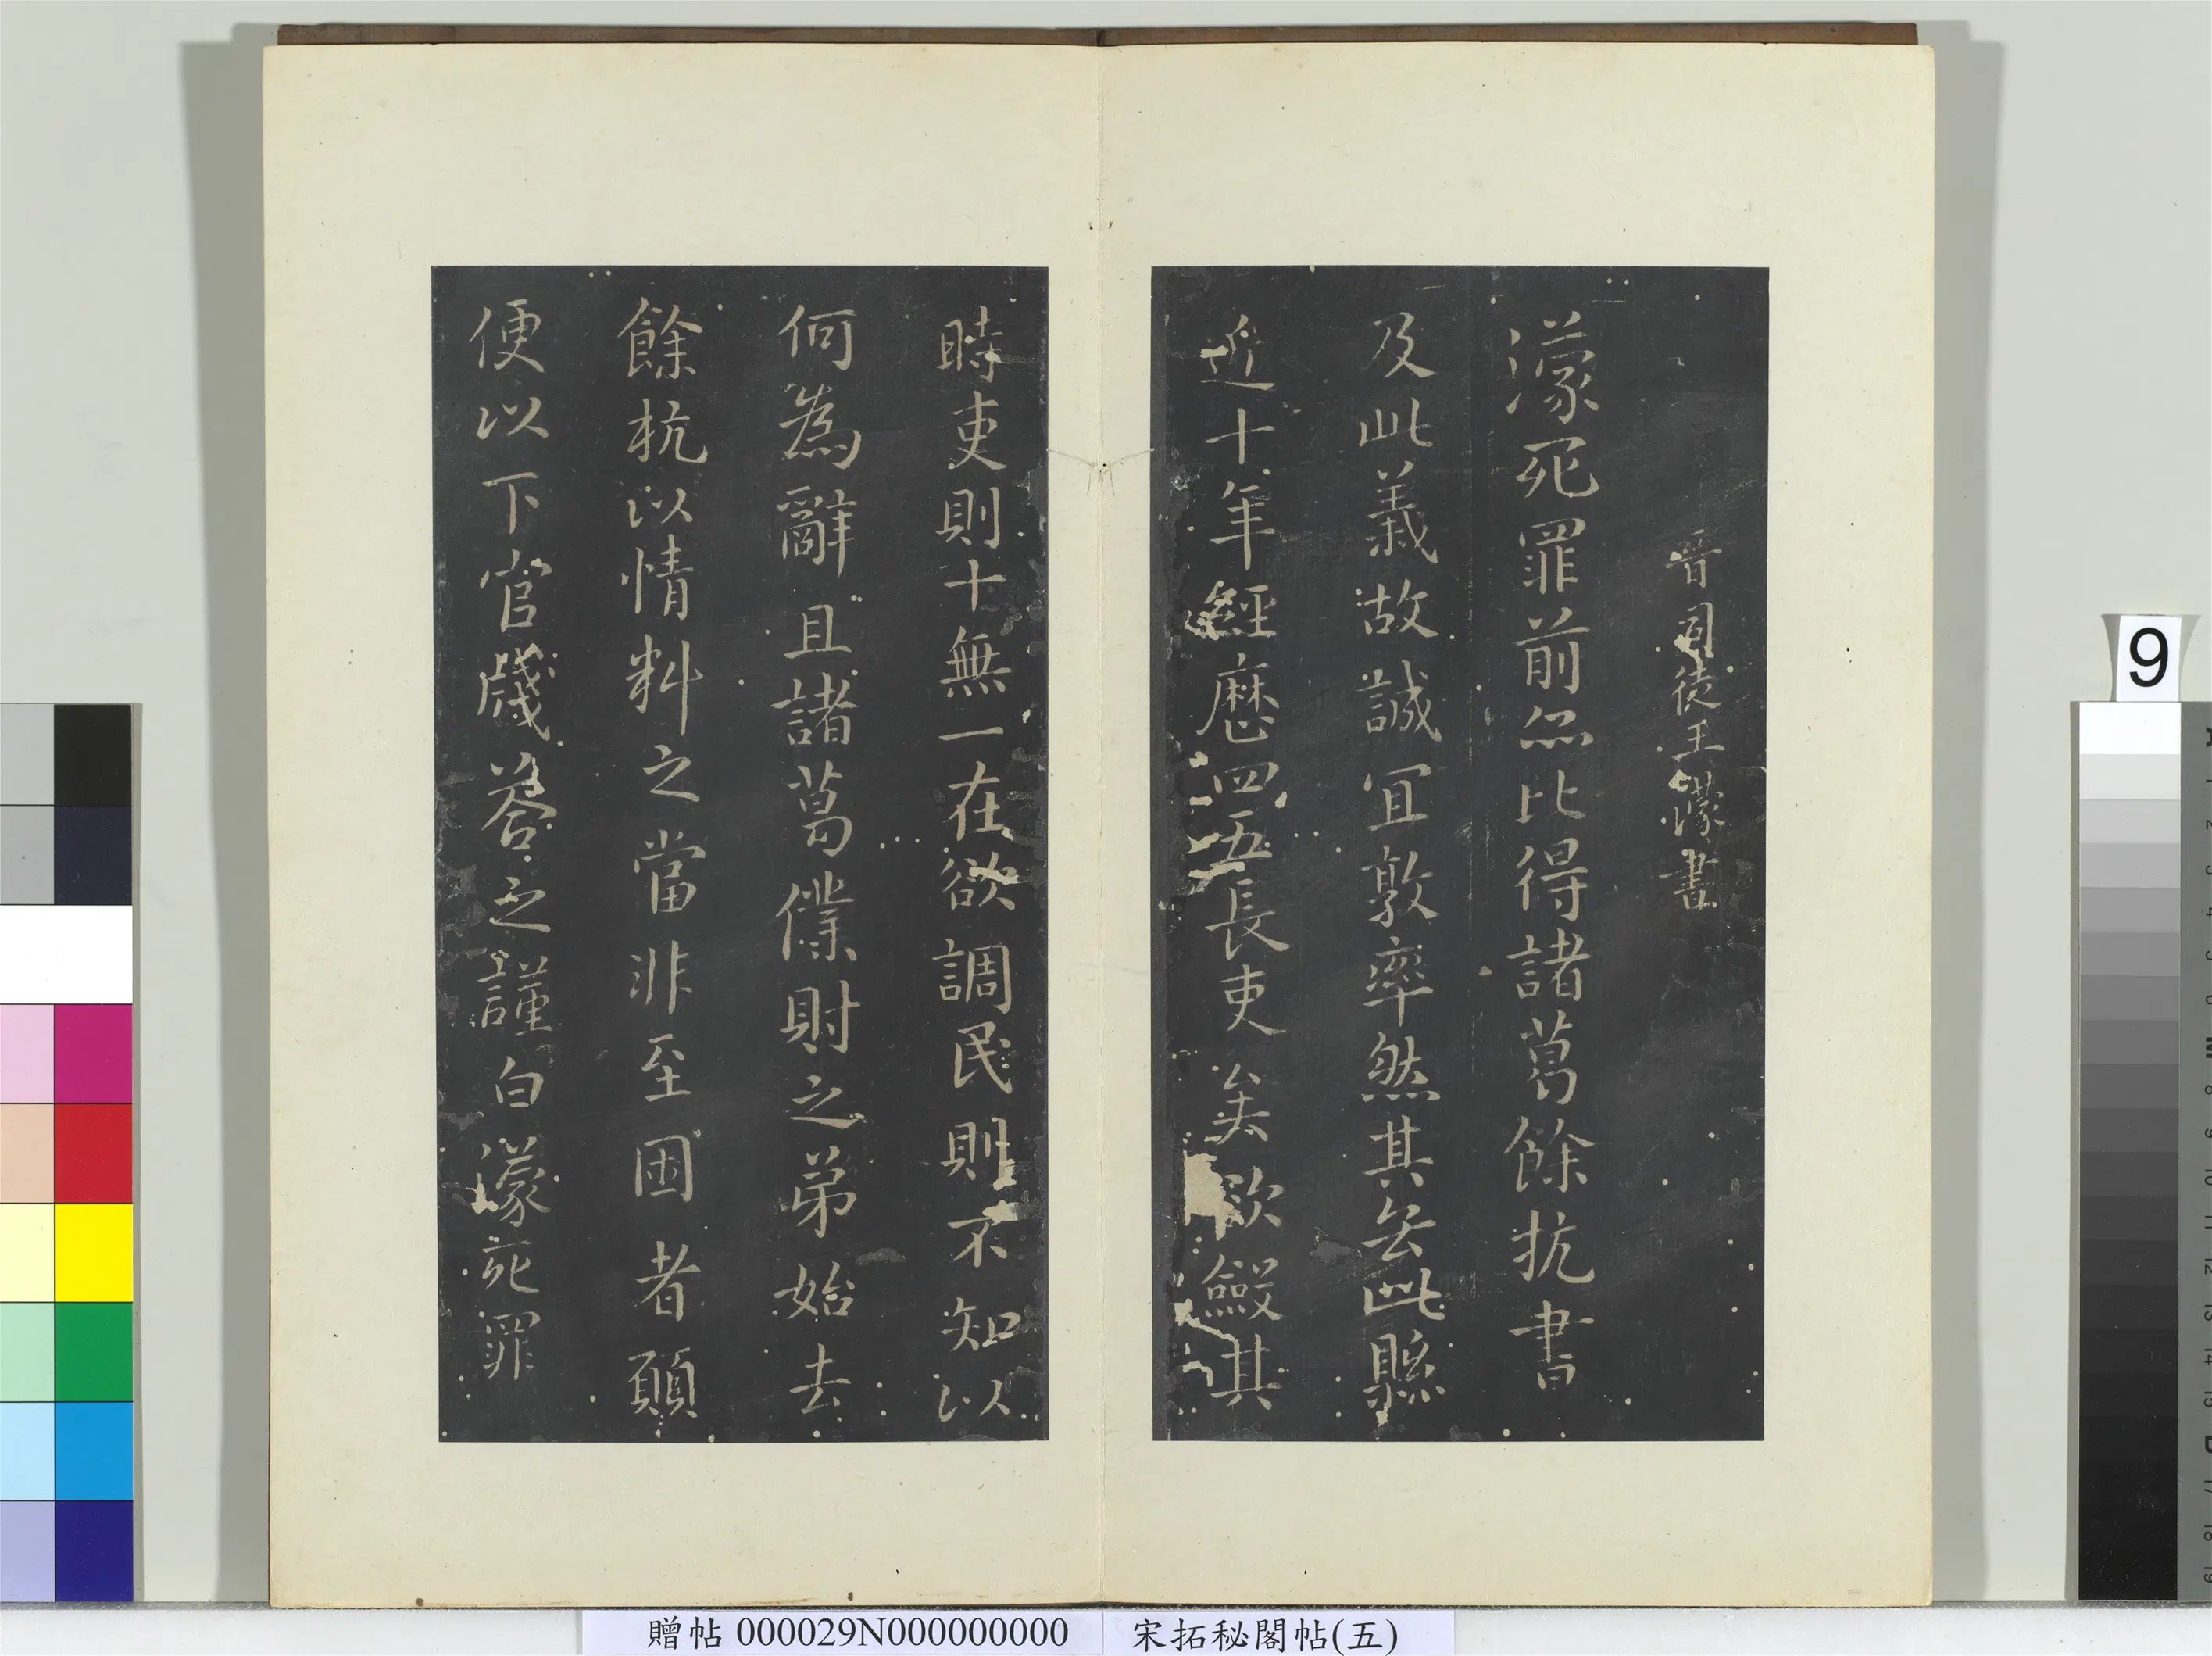 晉司徒王濛書
濛死罪前所比得諸葛餘抗書
及此義故誠冝敦率然其去此縣
近十年經歷四五長吏矣歛其
時吏則十無一在欲調民則不知以
何為辭且諸葛僕財之弟始去
餘杭以情料之當非至困者願
便以下官牋答之謹白濛死罪
9
贈帖 000029N000000000
宋拓秘閣帖(五)